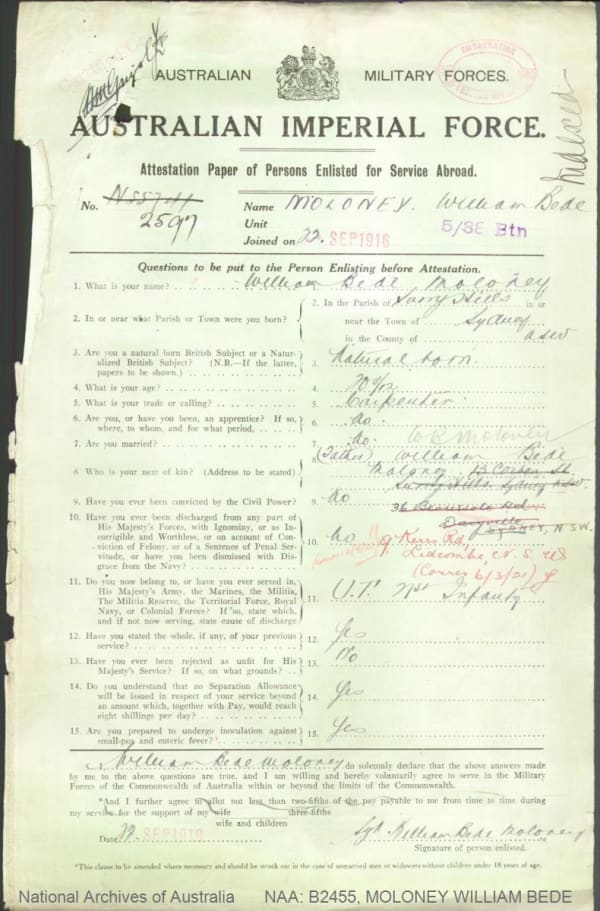 AUSTRALIAN MILITARY FORCES.
AUSTRALIAN IMPERIAL FORCE.
Indexed
Attestation Paper of Persons Enlisted for Service Abroad.
No. N55741 Name MOLONEY. William Bede
2597 Unit 5/38 Btn
Joined on 22. SEP 1916
Questions to be put to the Person Enlisting before Attestation.
1. What is your name? William Bede Moloney
2. In or near what Parish or Town were you born?
2. In the Parish of Surry Hills in or
near the Town of Sydney
in the County of NSW
3. Are you a natural born British Subject or a Natur-
alized British Subject? (N.B.—If the latter,
papers to be shown.)
3. Natural born.
4. What is your age?
4.
5. What is your trade or calling?
5. Carpenter.
6. Are you, or have you been, an apprentice? If so,
where, to whom, and for what period.
6. No.
7. Are you married?
7. No. W B Moloney
8. Who is your next of kin? (Address to be stated)
8 (Father) William Bede
Moloney St.
Surry Hills Sydney NSW.
36 Rd.
SYDNEY, N.S.W.
9 Kerrs Rd,
Lidcombe N.S.W
(Corres 6/3/21)
9. Have you ever been convicted by the Civil Power?
9. No
10. Have you ever been discharged from any part of
His Majesty's Forces, with Ignominy, or as In-
corrigible and Worthless, or on account of Con-
viction of Felony, or of a Sentence of Penal Ser-
vitude, or have you been dismissed with Dis-
grace from the Navy?
10. No
11. Do you now belong to, or have you ever served in,
His Majesty's Army, the Marines, the Militia,
The Militia Reserve, the Territorial Force, Royal
Navy, or Colonial Forces? If so, state which,
and if not now serving, state cause of discharge
11. Infantry
12. Have you stated the whole, if any, of your previous
service?
12. Yes
13. Have you ever been rejected as unfit for His
Majesty's Service? If so, on what grounds?
13. No
14. Do you understand that no Separation Allowance
will be issued in respect of your service beyond
an amount which, together with Pay, would reach
eight shillings per day?
14. Yes
15. Are you prepared to undergo inoculation against
small-pox and enteric fever?
15. Yes
I, William Bede Moloney do solemnly declare that the above answers made
by me to the above questions are true, and I am willing and hereby voluntarily agree to serve in the Military
Forces of the Commonwealth of Australia within or beyond the limits of the Commonwealth.
*And I further agree to allot not less than two-fifths of the pay payable to me from time to time during
three-fifths
my service for the support of my wife
wife and children
Date 22 SEP 1916 Sgd William Bede Moloney
Signature of person enlisted.
*This clause to be amended where necessary and should be struck out in the case of unmarried men or widowers without children under 18 years of age.
National Archives of Australia NAA: B2455, MOLONEY WILLIAM BEDE